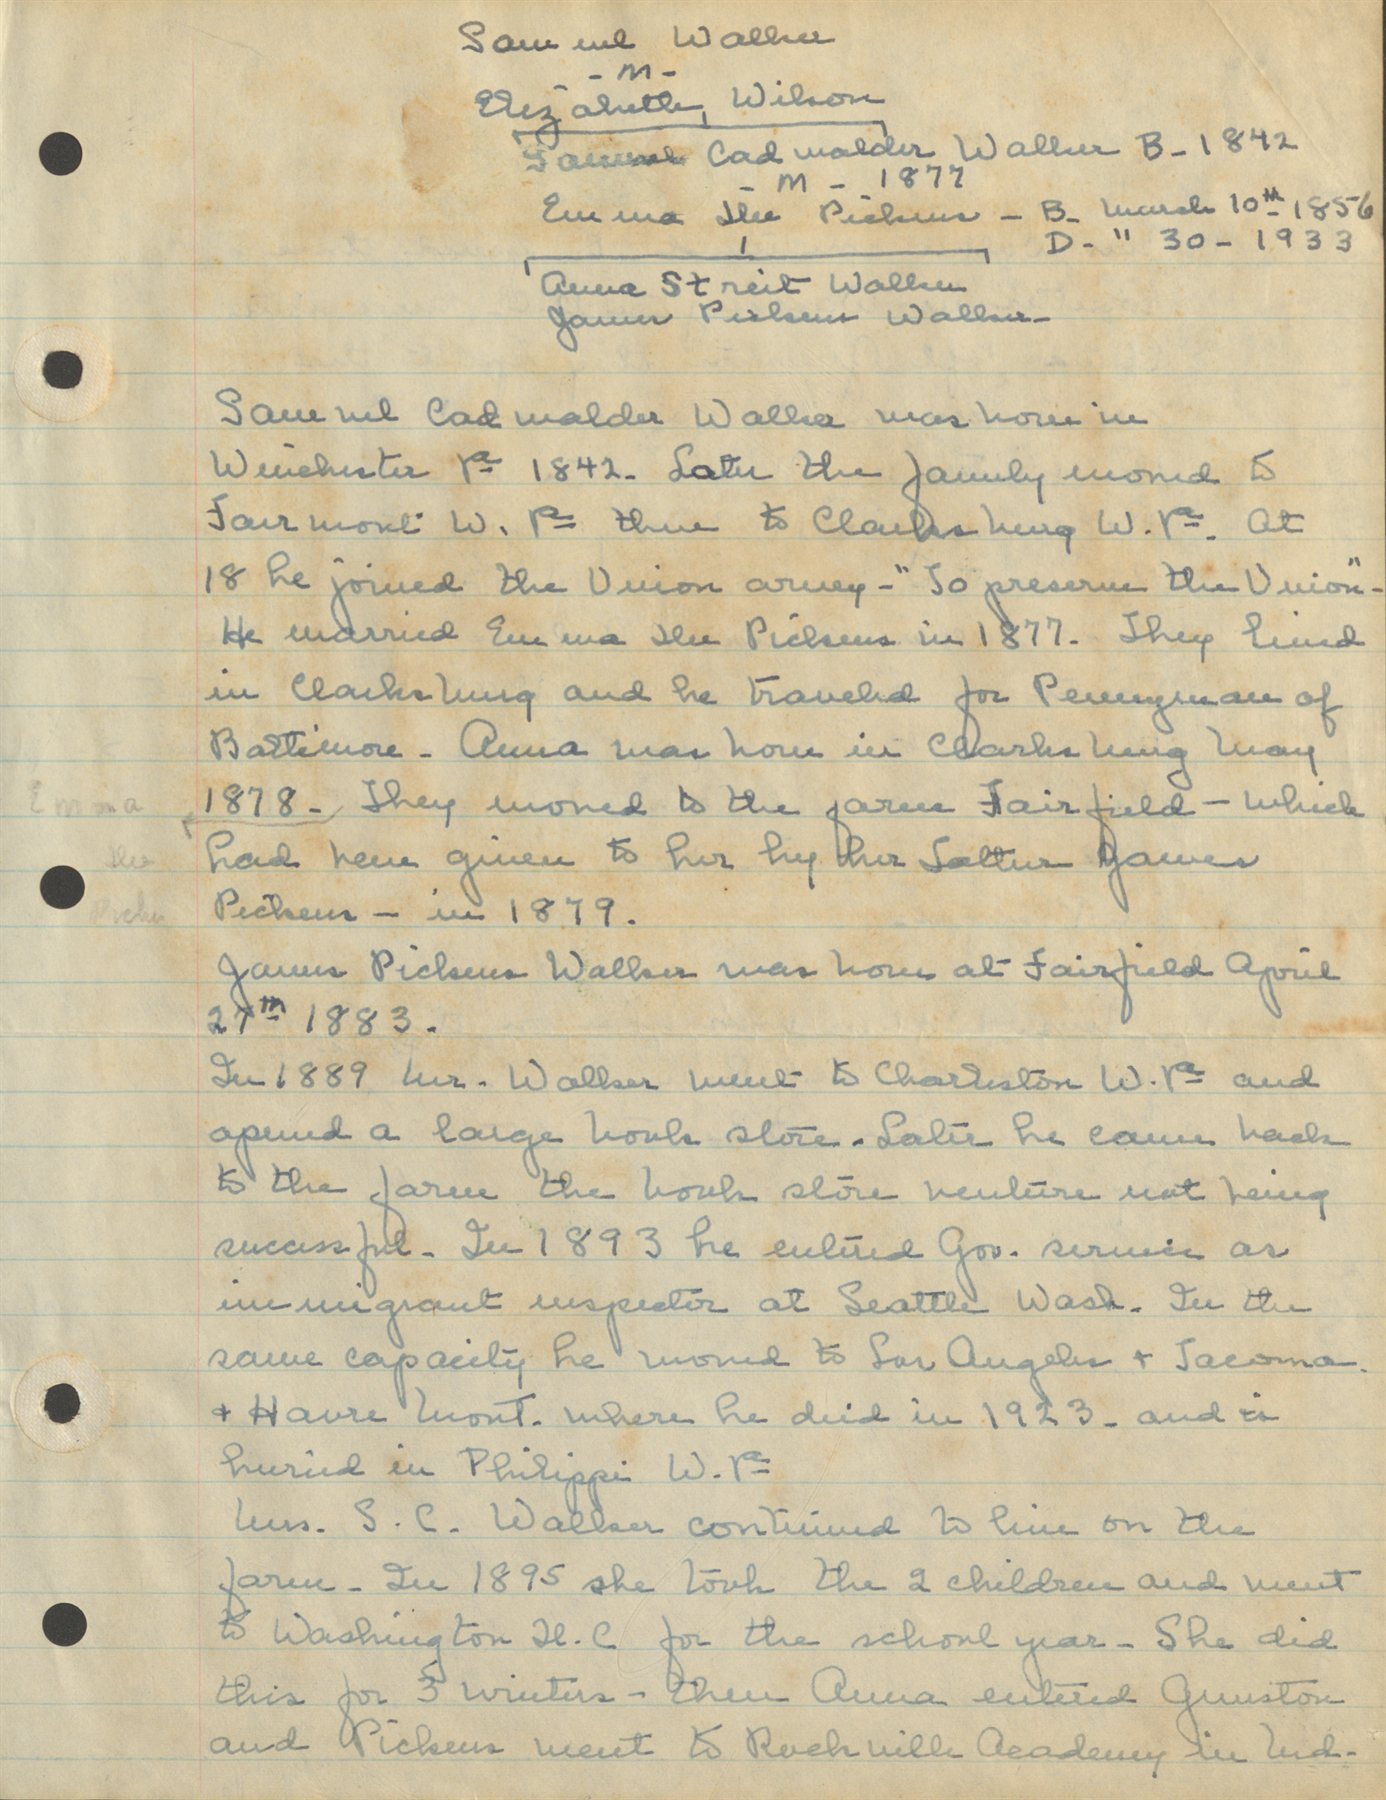 Samuel Walker
- M -
Elizabeth Wilson
Samuel Cadwalder Walker B - 1842
- M - 1877
Emma Dee Pickens - B - March 10th 1856
D - " 30 - 1933
Anna Streit Walker
James Pickens Walker -
Samuel Cadwalder Walker was born in
Winchester Va 1842. Later the family moved to
Fairmont W. Va then to Clarksburg W. Va. At
18 he joined the Union army - "To preserve the Union" -
He married Emma Dee Pickens in 1877. They lived
in Clarksburg and he traveled for Pennyman of
Baltimore - Anna was born in Clarksburg May
1878 - They moved to the farm Fairfield - which
Emma
Dee
Picken
had been given to her by her Father James
Pickens - in 1879.
James Pickens Walker was born at Fairfield April
27th 1883.
In 1889 Mr. Walker went to Charleston W. Va and
opened a large book store. Later he came back
to the farm the book store venture not being
sucessful. In 1893 he entered Gov. service as
immigrant inspector at Seattle Wash. In the
same capacity he moved to Los Angeles + Tacoma.
+ Havre Mont. where he died in 1923 - and is
buried in Philippi W. Va
Mrs. S. C. Walker continued to live on the
farm - In 1895 she took the 2 children and went
to Washington D.C for the school year - She did
this for 5 winters - then Anna entered Gunston
and Pickens went to Rockville Academy in Md -